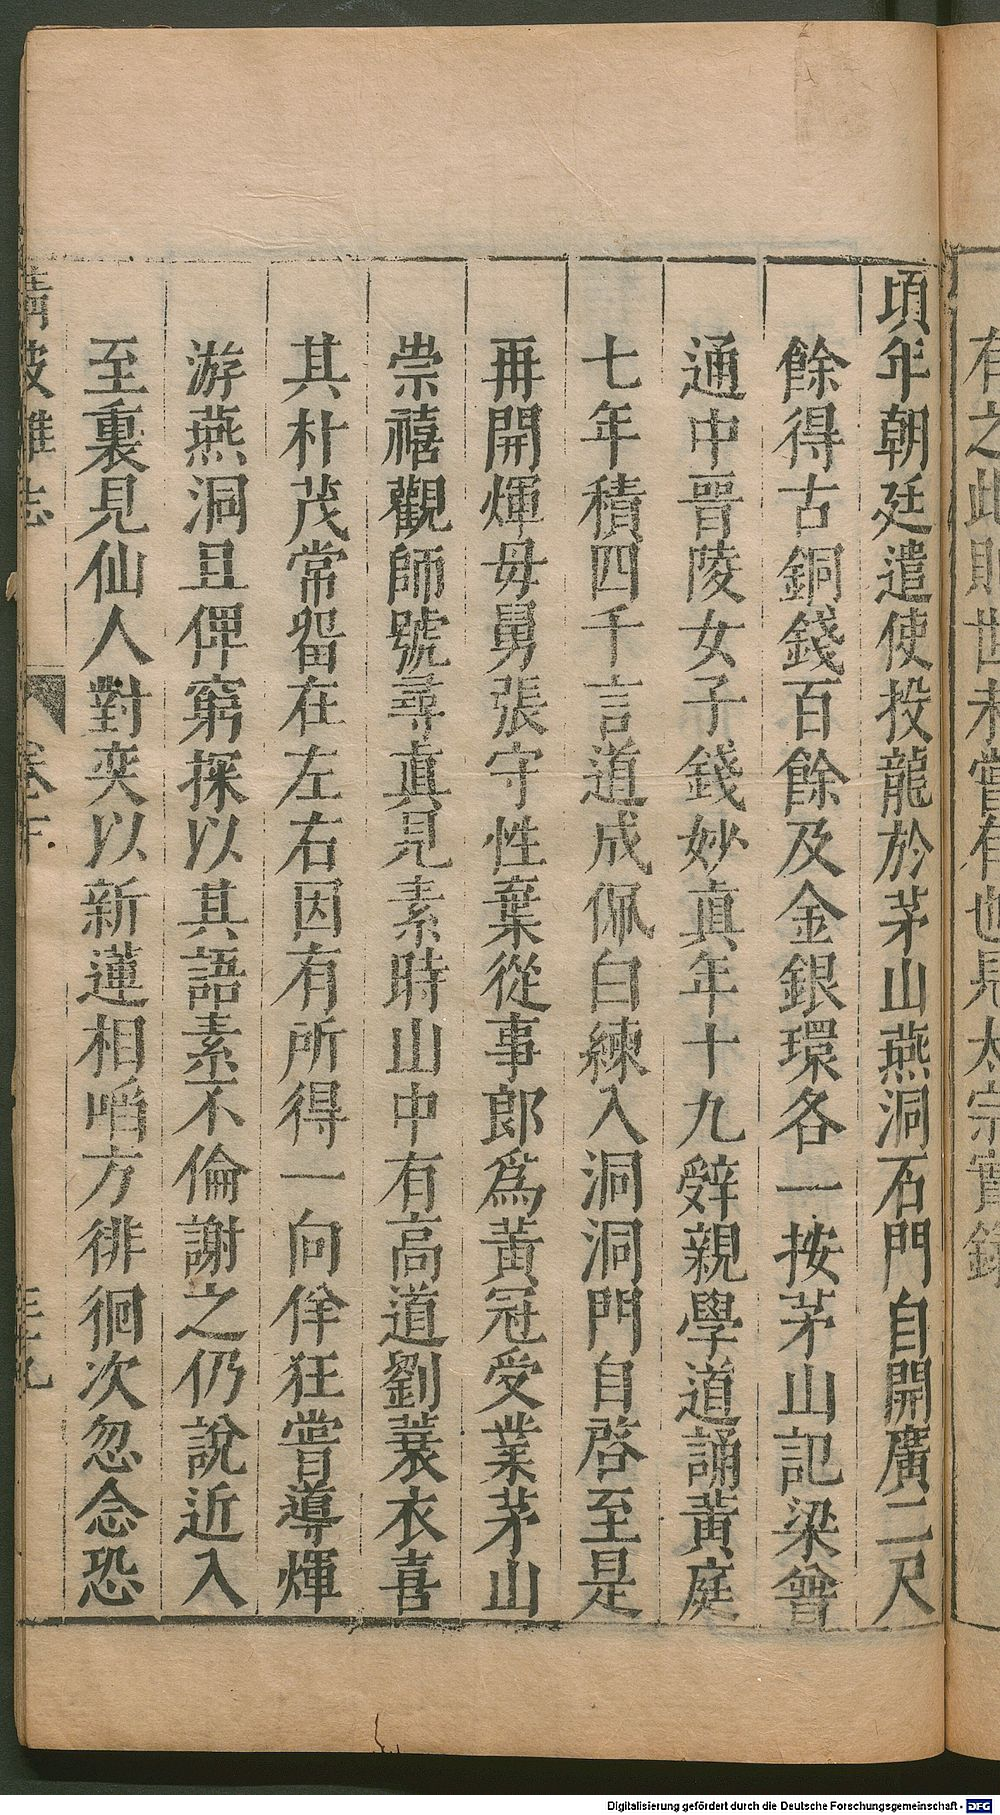 有之此
世未嘗有也見太宗實錄
頃年朝廷遣使投龍於茅山燕洞石門自開廣二尺
餘得古銅錢百餘及金銀環各一按茅山記梁曾
通中晉陵女子錢妙真年十九辤親學道誦黃庭
七年積四千言道成佩白練入洞洞門自啓至是
再開煇毋舅張守性棄從事郎爲黃冠受業茅山
崇禧觀師號尋真見素時山中有高道劉蓑衣喜
其朴茂常留在左右因有所得一向佯狂嘗導煇
游燕洞且俾窮探以其語素不倫謝之仍說近入
至裏見仙人對奕以新蓮相啗方徘徊次忽念恐
清波雜志
卷下
三十九
Digitalisierung gefördert durch die Deutsche Forschungsgemeinschaft - DFG